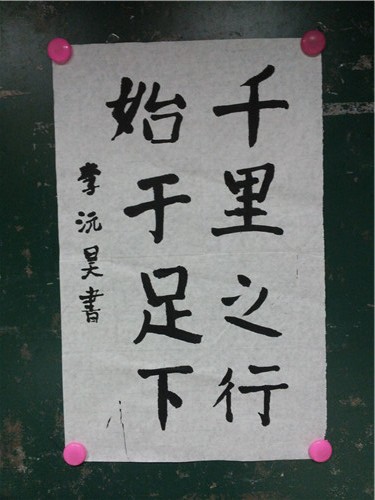 千里之行
始于足下
李沅昊書